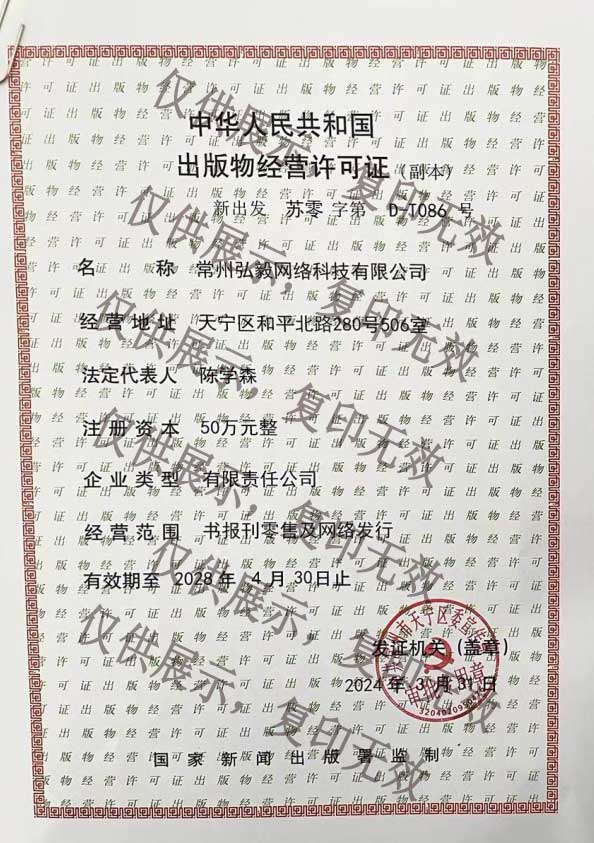 中华人民共和国
出版物经营许可证(副本)
新出发 苏零 字第 D-T086 号
名 称 常州弘毅网络科技有限公司
经营地址 天宁区和平北路280号506室
法定代表人 陈学森
注册资本 50万元整
企业类型 有限责任公司
经营范围 书报刊零售及网络发行
有效期至 2028年 4月30日止
发证机关(盖章)
2024年 3月31日
国家新闻出版署监制
仅供展示,复印无效
仅供展示,复印无效
仅供展示,复印无效
仅供展示,复印无效
仅供展示,复印无效
仅供展示,复印无效